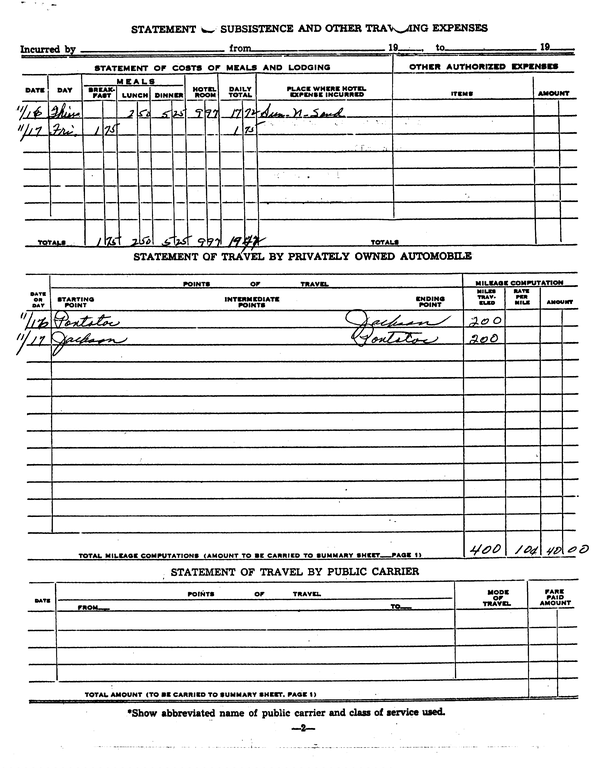 STATEMENT SUBSISTENCE AND OTHER TRAV ING EXPENSES
Incurred by from 19 , to 19
STATEMENT OF COSTS OF MEALS AND LODGING OTHER AUTHORIZED EXPENSES
DATE DAY MEALS BREAK-FAST LUNCH DINNER HOTEL ROOM DAILY TOTAL PLACE WHERE HOTEL EXPENSE INCURRED ITEMS AMOUNT
11/16 Thurs 2 50 5 25 9 97 17 72 Sun-N-Sand
11/17 Fri. 1 75 1 75
TOTALS 1 75 2 50 5 25 9 97 TOTALS
STATEMENT OF TRAVEL BY PRIVATELY OWNED AUTOMOBILE
DATE OR DAY POINTS OF TRAVEL MILEAGE COMPUTATION
STARTING POINT INTERMEDIATE POINTS ENDING POINT MILES TRAV-ELED RATE PER MILE AMOUNT
11/16 Pontotoc Jackson 200
11/17 Jackson Pontotoc 200
TOTAL MILEAGE COMPUTATIONS (AMOUNT TO BE CARRIED TO SUMMARY SHEET PAGE 1) 400 10¢ 40 00
STATEMENT OF TRAVEL BY PUBLIC CARRIER
DATE POINTS OF TRAVEL MODE OF TRAVEL FARE PAID AMOUNT
FROM TO
TOTAL AMOUNT (TO BE CARRIED TO SUMMARY SHEET, PAGE 1)
*Show abbreviated name of public carrier and class of service used.
—2—